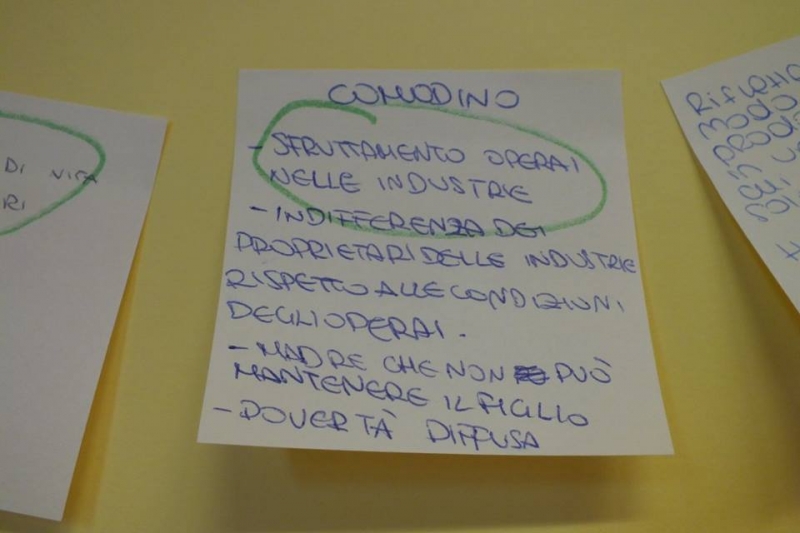 COMODINO
- SFRUTTAMENTO OPERAI
NELLE INDUSTRIE
- INDIFFERENZA DEI
PROPRIETARI DELLE INDUSTRIE
RISPETTO ALLE CONDIZIONI
DEGLI OPERAI.
- MADRE CHE NON PUÒ
MANTENERE IL FIGLIO
- POVERTÀ DIFFUSA
DI VITA
RI